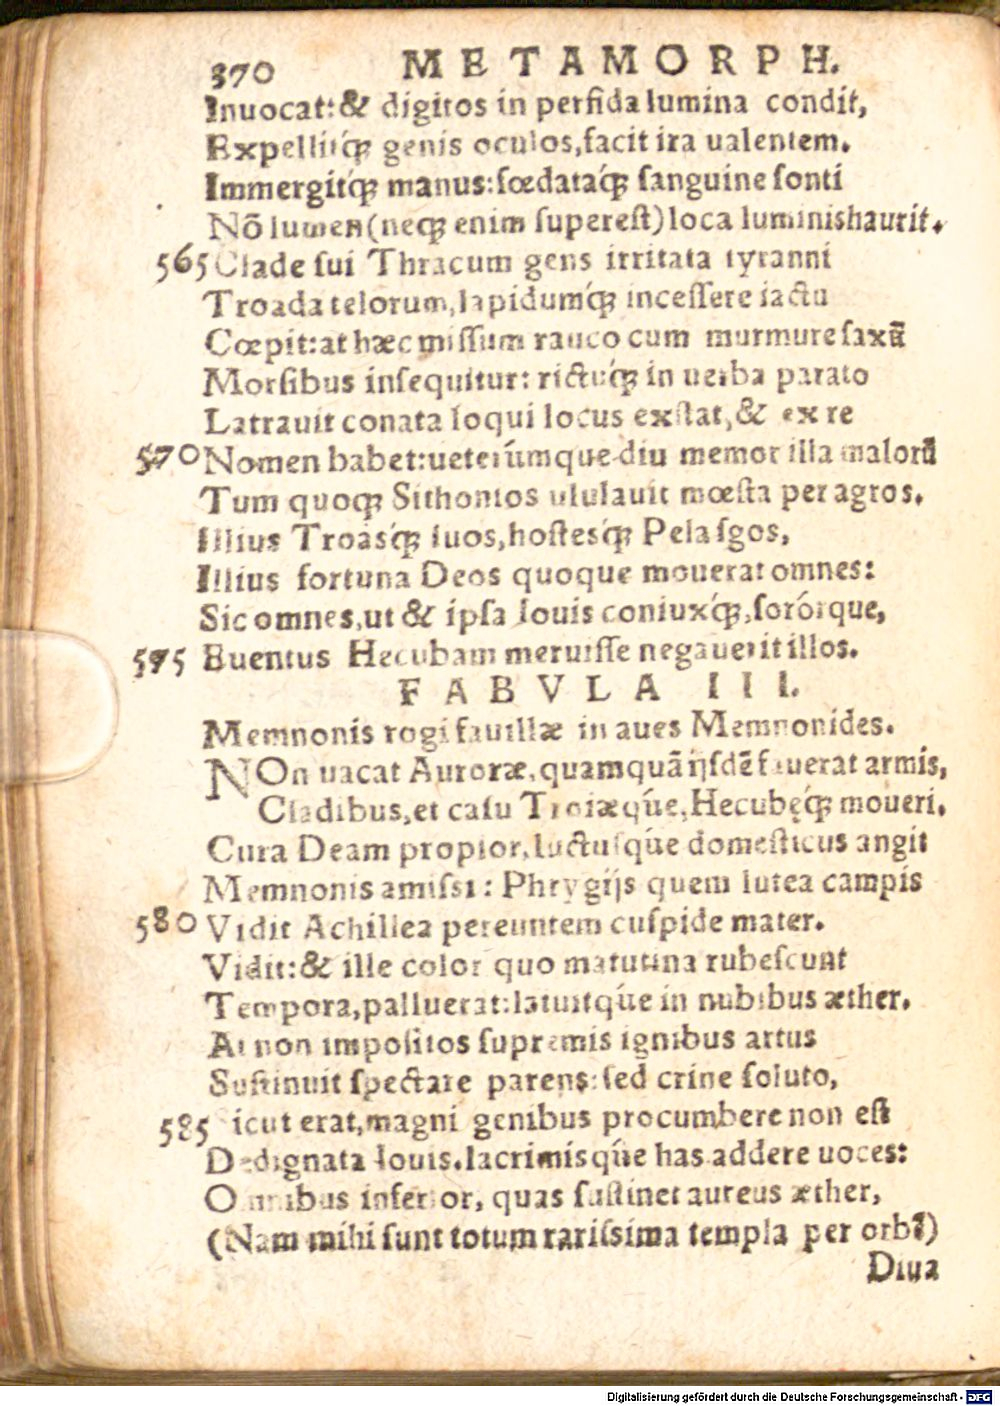 370 METAMORPH.
Inuocat: & digitos in perfida lumina condit,
Expellitq́ꝫ genis oculos, facit ira ualentem.
Immergitq́ꝫ manus: fœdataq́ꝫ ſanguine ſonti
Nō lumen (neqꝫ enim ſupereſt) loca luminis haurit.
565 Clade ſui Thracum gens irritata tyranni
Troada telorum, lapidumq́ꝫ inceſſere iactu
Cœpit: at hæc miſſum rauco cum murmure ſaxū
Morſibus inſequitur: rictuq́ꝫ in uerba parato
Latrauit conata loqui locus exſtat, & ex re
570 Nomen habet: ueterúmque diu memor illa malorū
Tum quoqꝫ Sithonios ululauit mœſta per agros.
Illius Troasq́ꝫ ſuos, hoſtesq́ꝫ Pelaſgos,
Illius fortuna Deos quoque mouerat omnes:
Sic omnes, ut & ipſa Iouis coniuxq́ꝫ, ſorórque,
575 Euentus Hecubam meruiſſe negauerit illos.
FABVLA III.
Memnonis rogi fauillæ in aues Memnonides.
NOn uacat Auroræ, quamquā ijſdē fauerat armis,
Cladibus, et caſu Troiæq́ue, Hecubęq́ꝫ moueri.
Cura Deam propior, luctuſq́ue domeſticus angit
Memnonis amiſsi: Phrygijs quem lutea campis
580 Vidit Achillea pereuntem cuſpide mater.
Vidit: & ille color quo matutina rubeſcunt
Tempora, palluerat: latuitq́ue in nubibus æther.
At non impoſitos ſupremis ignibus artus
Suſtinuit ſpectare parens: ſed crine ſoluto,
585 icut erat, magni genibus procumbere non eſt
Dedignata Iouis. lacrimisq́ue has addere uoces:
Omnibus inferior, quas ſuſtinet aureus æther,
(Nam mihi ſunt totum rariſsima templa per orbē)
Diua
Digitalisierung gefördert durch die Deutsche Forschungsgemeinschaft - DFG